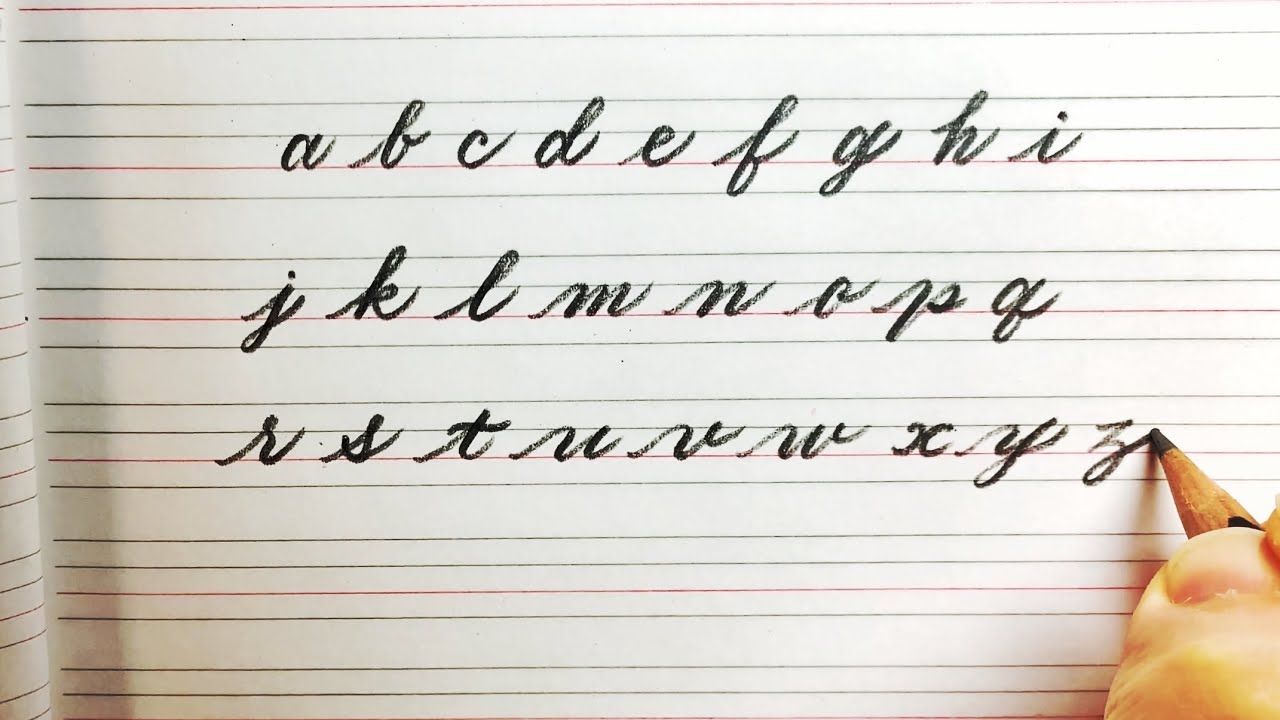 a b c d e f g h i
j k l m n o p q
r s t u v w x y z